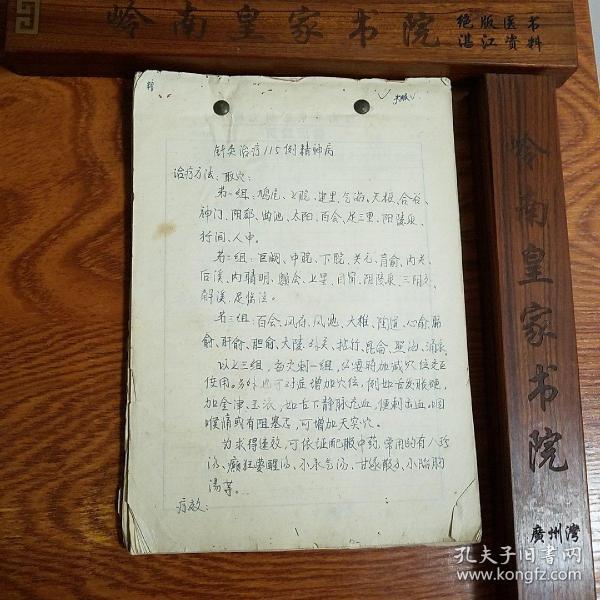 岭南皇家书院
绝版医书
湛江资料
针灸治疗115例精神病
治疗方法:取穴:
第一组:鸠尾、上脘、建里、气海、天枢、合谷、
神门、阴郄、曲池、太阳、百会、足三里、阳陵泉、
行间、人中。
第二组:巨阙、中脘、下脘、关元、肓俞、内关、
后溪、内睛明、上星、目窗、阴陵泉、三阴交、
解溪、足临泣。
第三组:百会、风府、风池、大椎、陶道、心俞、膈
俞、肝俞、胆俞、大陵、外关、昆仑、照海、涌泉、
以上三组,每次刺一组,必要时加减穴位交互
使用。另外也可对症增加穴位,例如舌发眼硬,
加金津、玉液,如舌下静脉充血,便刺出血,咽
喉痛或有阻塞感,可增加天突穴。
为求得速效,可依证配服中药,常用的有
汤、癫狂梦醒汤、小承气汤、甘遂散
汤等。
疗效:
岭南皇家书院
廣州灣
孔夫子旧书网
www.kongfz.com